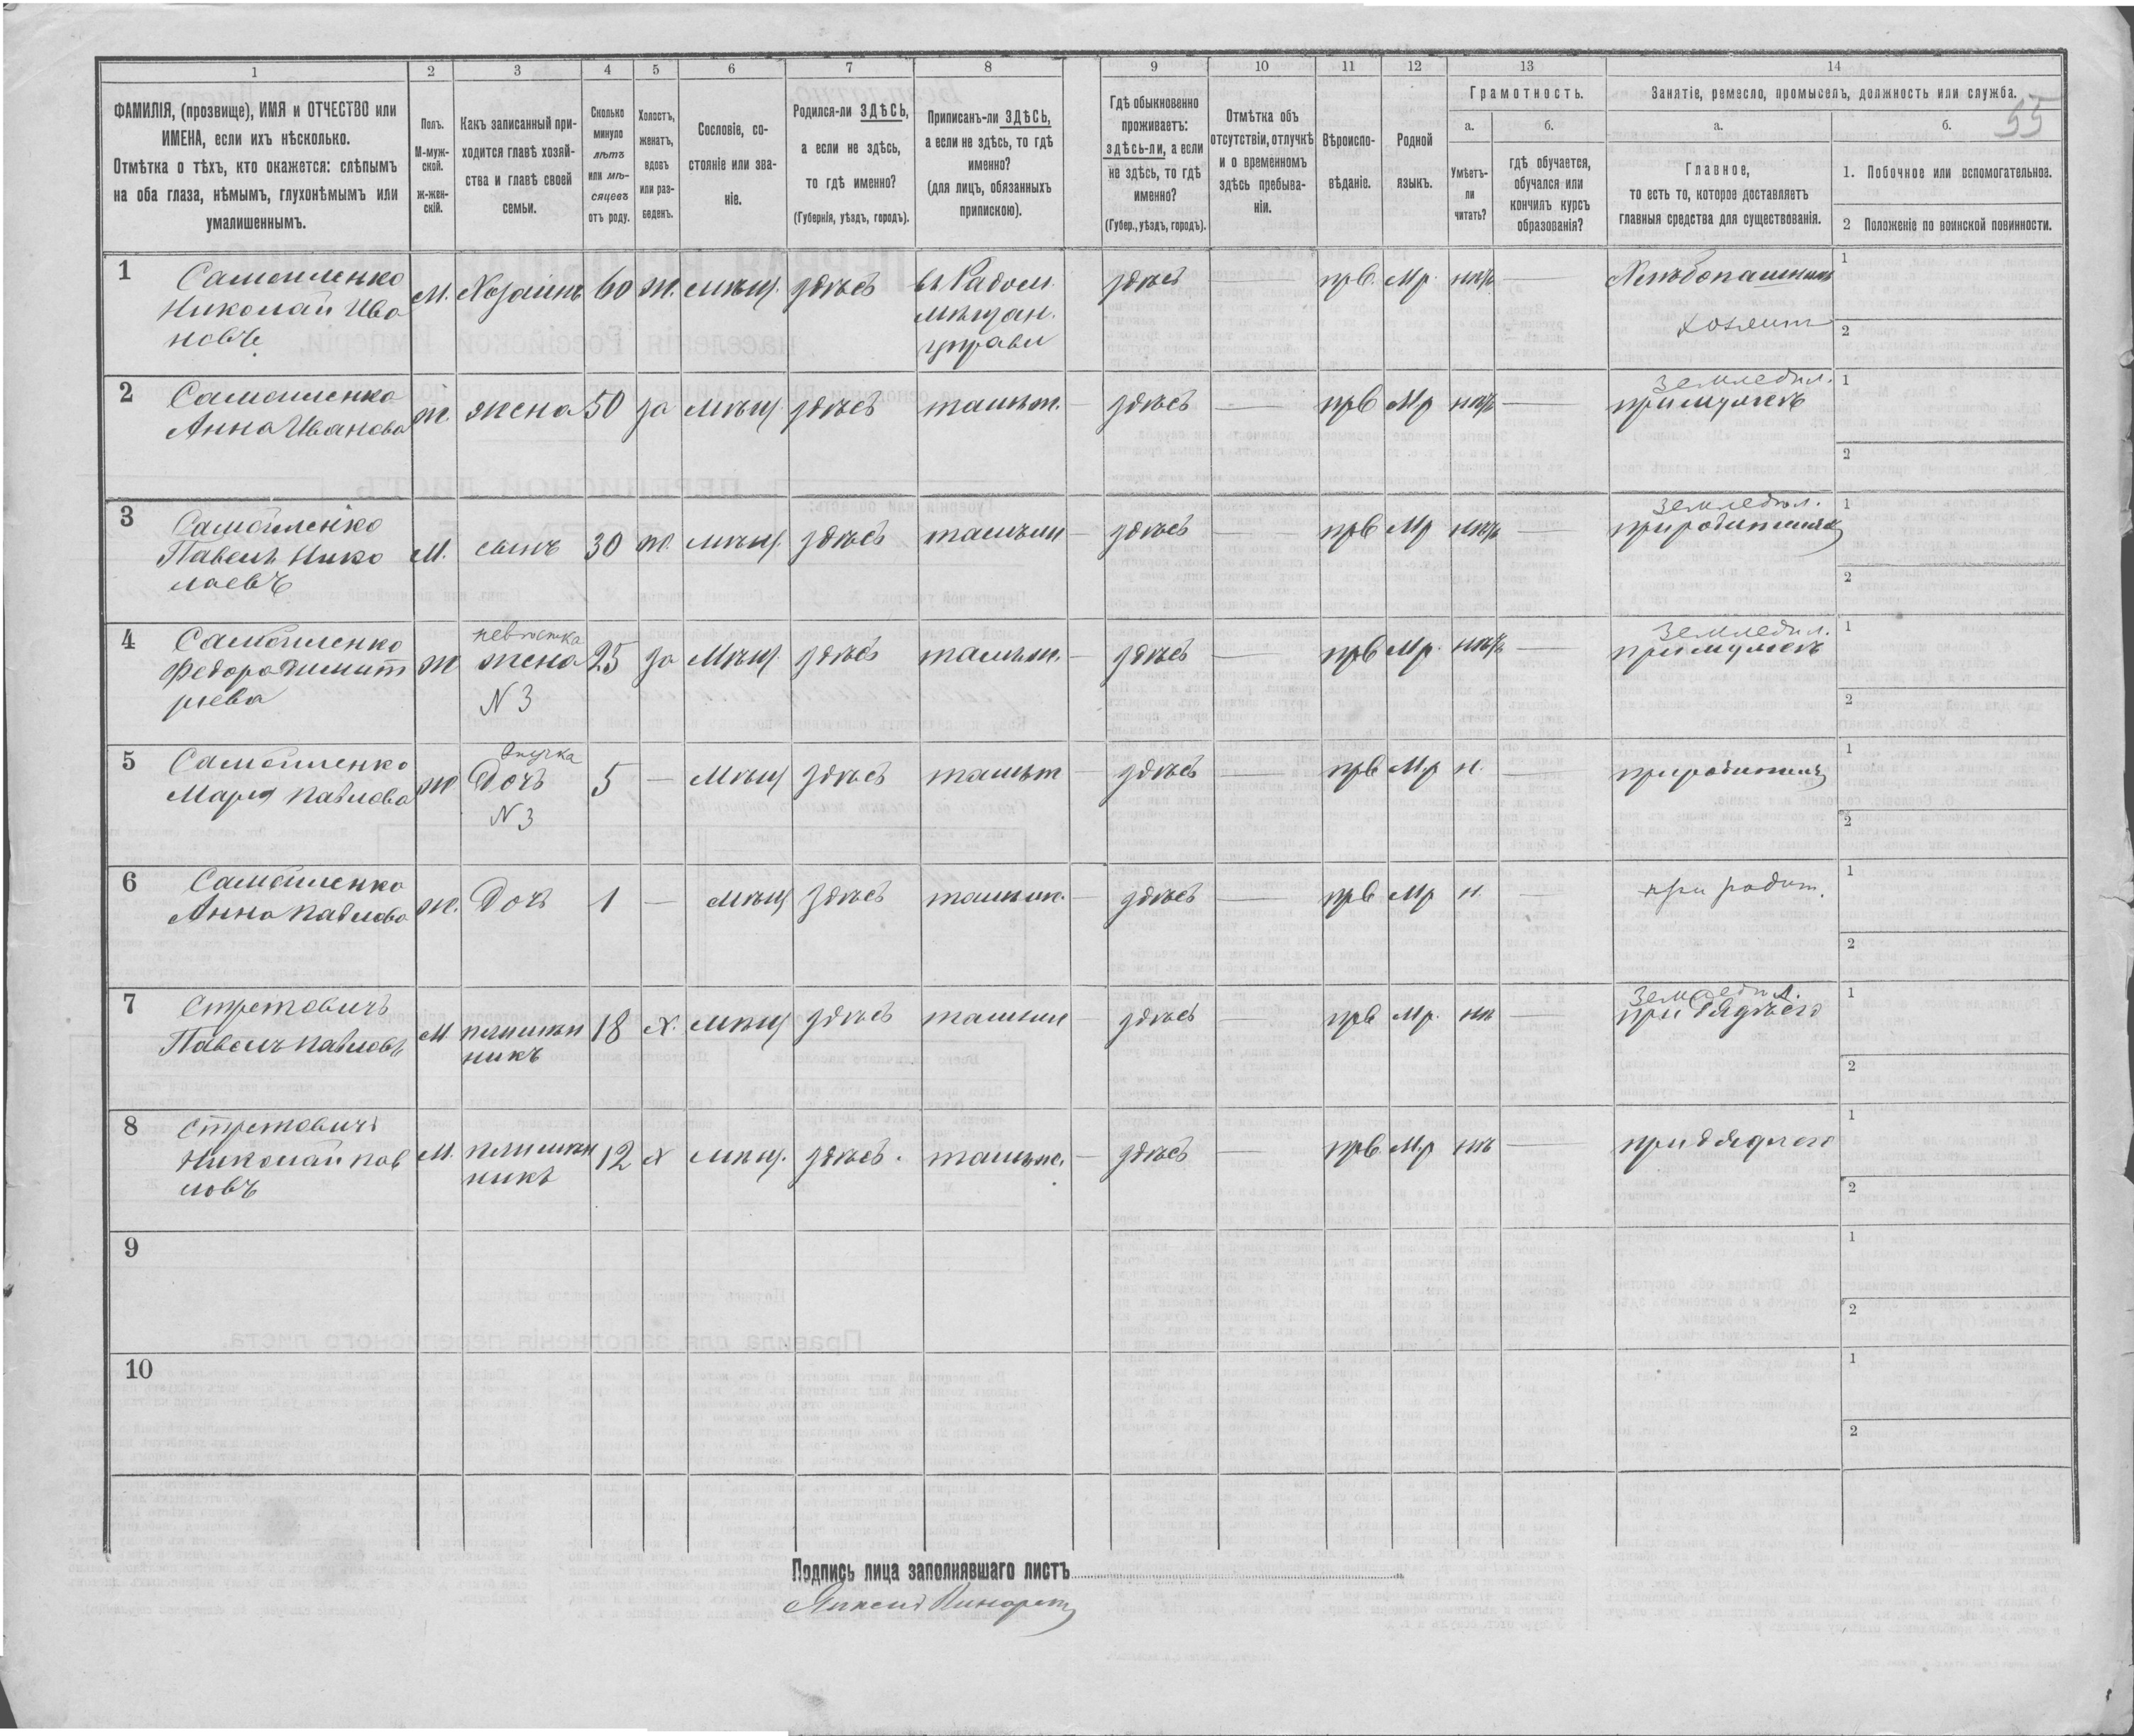 1 2 3 4 5 6 7 8 9 10 11 12 13 14
ФАМИЛІЯ, (прозвище), ИМЯ и ОТЧЕСТВО или
ИМЕНА, если ихъ нѣсколько.
Отмѣтка о тѣхъ, кто окажется: слѣпымъ
на оба глаза, нѣмымъ, глухонѣмымъ или
умалишеннымъ.
Полъ.
М-муж-
ской.
ж-жен-
скій.
Какъ записанный при-
ходится главѣ хозяй-
ства и главѣ своей
семьи.
Сколько
минуло
лѣтъ
или мѣ-
сяцевъ
отъ роду.
Холостъ,
женатъ,
вдовъ
или раз-
веденъ.
Сословіе, со-
стояніе или зва-
ніе.
Родился-ли ЗДѢСЬ,
а если не здѣсь,
то гдѣ именно?
(Губернія, уѣздъ, городъ).
Приписанъ-ли ЗДѢСЬ,
а если не здѣсь, то гдѣ
именно?
(для лицъ, обязанныхъ
припискою).
Гдѣ обыкновенно
проживаетъ:
здѣсь-ли, а если
не здѣсь, то гдѣ
именно?
(Губер., уѣздъ, городъ).
Отмѣтка объ
отсутствіи, отлучкѣ
и о временномъ
здѣсь пребыва-
ніи.
Вѣроиспо-
вѣданіе.
Родной
языкъ.
Грамотность.
а.
Умѣетъ-
ли
читать?
б.
гдѣ обучается,
обучался или
кончилъ курсъ
образованія?
Занятіе, ремесло, промыселъ, должность или служба.
55
а.
Главное,
то есть то, которое доставляетъ
главныя средства для существованія.
б.
1. Побочное или вспомогательное.
2 Положеніе по воинской повинности.
1
Самойленко
Николай Ива
новъ
М. Хозяинъ 60 ж. мѣщ. здѣсь
въ Радом.
мѣщан.
управи
здѣсь — прв. Мр. нѣтъ —
Хлѣбопашникъ
хозяинъ
1
2
2
Самойленко
Анна Иванова
ж. жена 50 за мѣщ. здѣсь тамъ ж. — здѣсь — прв Мр нѣтъ —
земледѣл.
при мужѣ
1
2
3
Самойленко
Павелъ Нико
лаевъ
М. сынъ 30 ж. мѣщ. здѣсь — здѣсь — прв Мр нѣтъ —
земледѣл.
при родителяхъ
1
2
4
Самойленко
Федора Димит
ріева
ж
невѣстка
жена
N 3
25 за Мѣщ. здѣсь — здѣсь — прв Мр. нѣтъ —
земледѣл.
при мужѣ
1
2
5
Самойленко
Марія Павлова
ж
внучка
Дочь
N 3
5 — Мѣщ здѣсь — здѣсь — прв Мр н. —
1
2
6
Самойленко
Анна Павлова
ж. Дочь 1 — мѣщ здѣсь — здѣсь — прв Мр н. —
при родит.
1
2
7
Стретовичъ
Павелъ Павловъ
М
племян
никъ
18 х. мѣщ здѣсь — здѣсь — прв Мр. нѣ —
земледѣл.
при дядѣ его
1
2
8
Стретовичъ
Николай Пав
ловъ
М.
племян
никъ
12 х мѣщ. здѣсь. — здѣсь — прв. Мр нѣ —
при дядѣ его
1
2
9
1
2
10
1
2
Подпись лица заполнявшаго листъ